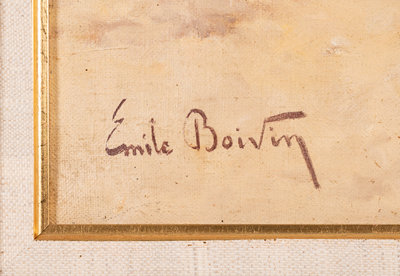 Émile Boivin